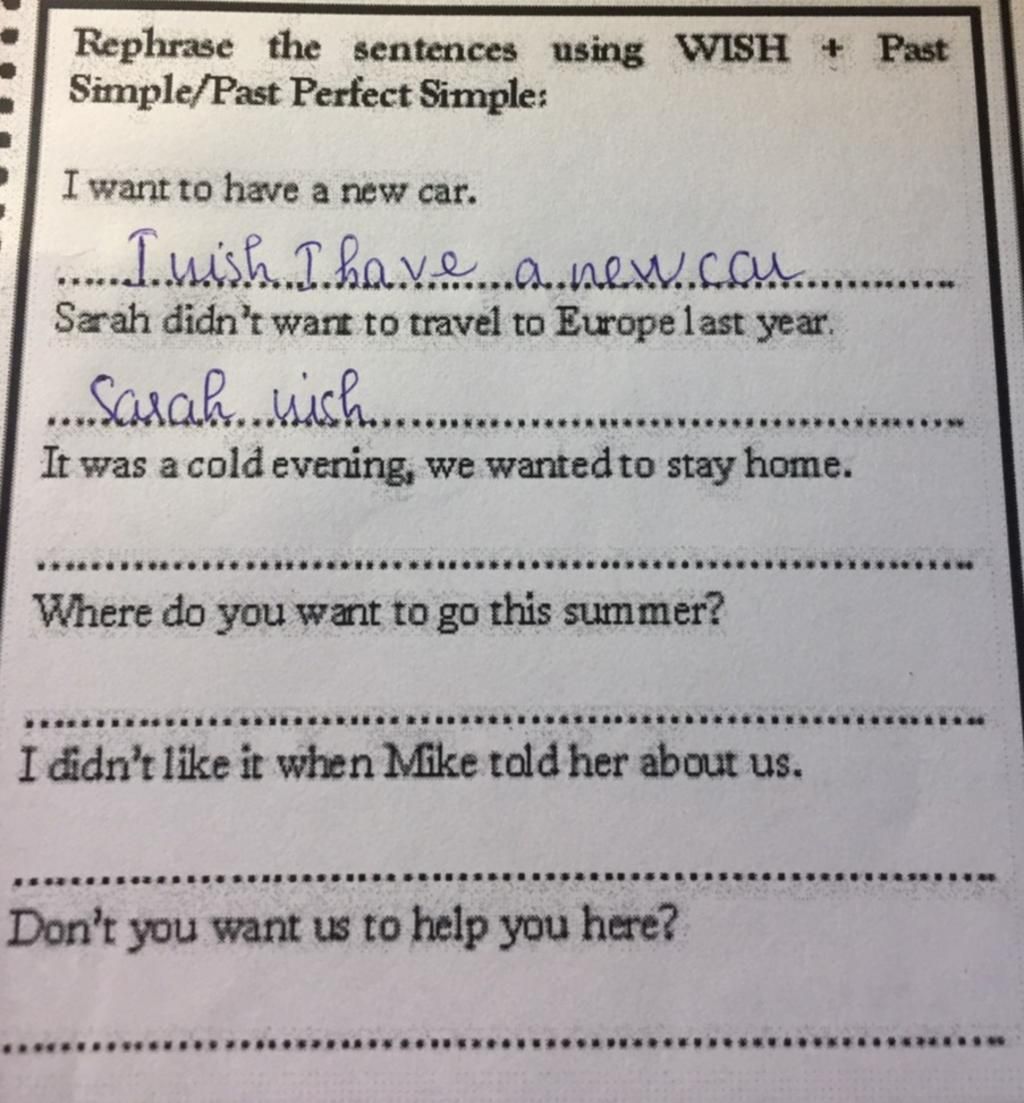 Rephrase the sentences using WISH + Past
Simple/Past Perfect Simple:
I want to have a new car.
I wish I have a new car
Sarah didn't want to travel to Europe last year.
Sarah wish
It was a cold evening, we wanted to stay home.
Where do you want to go this summer?
I didn't like it when Mike told her about us.
Don't you want us to help you here?